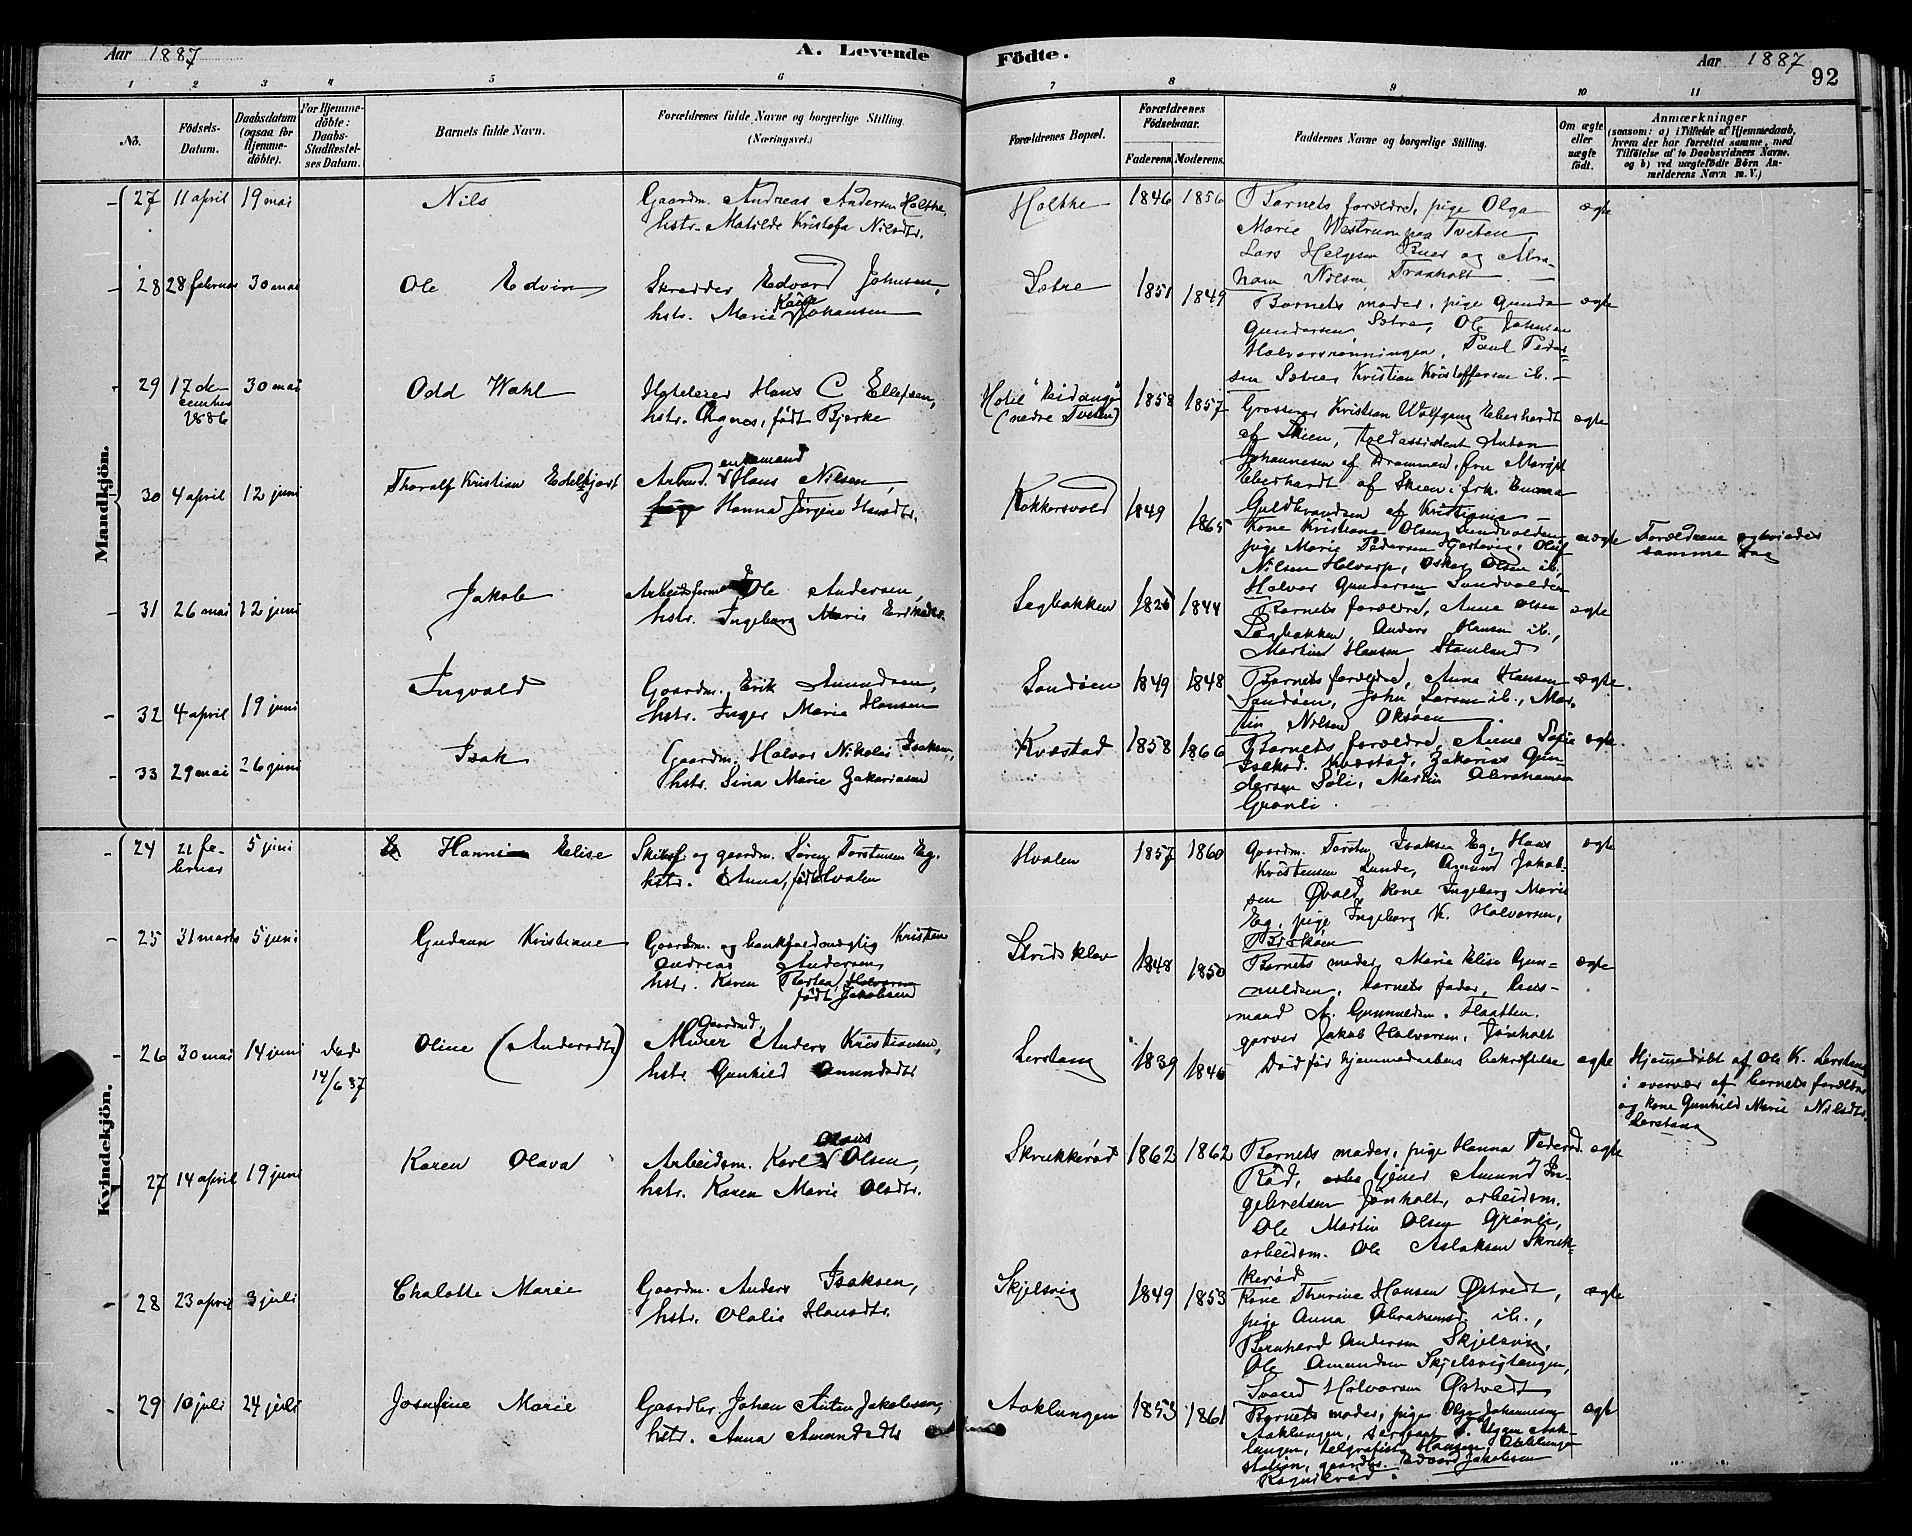 Aar 1887
A. Levende Födte.
Aar 1887
92
1 2 3 4 5 6 7 8 9 10 11
No.
Födsels-Datum.
Daabsdatum (ogsaa for Hjemme-döbte).
For Hjemme-döbte: Daabs-Stadfæstel-ses Datum.
Barnets fulde Navn.
Forældrenes fulde Navne og borgerlige Stilling. (Næringsvei.)
Forældrenes Bopæl.
Forældrenes Födselsaar.
Faderens. Moderens.
Faddernes Navne og borgerlige Stilling.
Om ægte eller uægte födt.
Anmærkninger
(saasom: a) i Tilfælde af Hjemmedaab, hvem der har forrettet samme, med Tilföielse af to Daabsvidners Navne. og b) ved uægtefödte Börn An-melderens Navn m. V.)
Mandkjön.
27 11 april 19 mai Nils
Gaardm. Andreas Andersen Holthe,
hstr. Matilde Kristofa Nilsdtr.
Holthe 1846 1856
Barnets forældre, pige Olga
Marie Westrum paa Tveten,
Lars Helgesen Buer og Abra-
ham Nilsen,
ægte
28 28 februar 30 mai Ole Edvin
Skrædder Edvard Johnsen,
hstr. Marie Johansen
Sætre 1851 1849
Barnets moder, pige Gunda
Gundersen Sætre, Ole Johnsen
Halvorsrønningen, Paul Peder-
sen Sætre, Kristian Kristoffersen ib.
ægte
29 17 de-cember 1886 30 mai Odd Wahl
Hoteleier Hans C Ellefsen,
hstr. Agnes, født Bjerke
Hotel "Eidanger" (nedre Tveten) 1858 1857
Grosserer Kristian Wolfgang Eberhardt
af Skien, Toldassistent Anton
Johannesen af Drammen, fru Margit
Eberhardt af Skien, frk. Emma
Guldbrandsen af Kristiania
ægte
30 4 april 12 juni Thoralf Kristian
Arbeid. enkemand Hans Nilsen,
pige Hanna Jørgine Hansdtr.
Kokkersvold 1849 1865
Kone Kristiane Olsen Sundvolden,
pige Marie Pedersen Hjertevig, Oluf
Nilsen, Oskar Olsen ib.,
Halvor Gundersen Sundvolden
uægte
Forældrene ægteviedes
samme Dag
31 26 mai 12 juni Jakob
Arbeidsformand Ole Andersen,
hstr. Ingeborg Marie Eriksdtr.
Legbakken 1826 1844
Barnets forældre, Anne Olsen
Legbakken, Anders Olsen ib.,
Martin Hansen Stamland
ægte
32 4 april 19 juni Ingvald
Gaardm. Erik Amundsen,
hstr. Inger Marie Hansen
Sandøen 1849 1848
Barnets forældre, Anna Hansen
Sandøen, John Larsen ib., Mar-
tin Nilsen Oksøen
ægte
33 29 mai 26 juni Isak
Gaardm. Halvor Nikolai Isaksen,
hstr. Sina Marie Zakariasen
Kvæstad 1858 1866
Barnets forældre, Anne Sofie
Isaksd. Kvæstad, Zakarias Gun-
dersen Soli, Martin Abrahamsen
Grønli.
ægte
Kvindekjön.
24 21 fe-bruar 5 juni Hanna Elise
Skibsf. og gaardm. Søren Torstensen Eg,
hstr. Anna, født Hvalen
Hvalen 1857 1860
Gaardm. Torsten Isaksen Eg, Hans
Kristensen Lunde, Amund Jakob-
sen Øvald, kone Ingeborg Marie
Eg, pige Ingeborg K. Halvorsen,
ægte
25 31 marts 5 juni Gudrun Kristiane
Gaardm. og bankfuldmægtig Kristian
Andreas Andersen,
hstr. Karen Bertea Halvorsen
født Jakobsen
Skridsklev 1848 1850
Barnets moder, Marie Elise Gun-
nuldsen, barnets fader, lens-
mand A. Gunnuldsen, Flaatten.
garver Jakob Halvorsen, Jønholt
ægte
26 30 mai 14 juni død 14/6 87 Oline (Andersdtr)
Gaardmd. Murer Anders Kristiansen,
hstr. Gunhild Amundsdtr
Lerstang 1839 1845
Død før hjemmedaabens bekræftelse
ægte
Hjemmedøbt af Ole K. Lerstang
i overvær af barnets forældre
og kone Gunhild Marie Nilsdtr.
Lerstang
27 14 april 19 juni Karen Olava
Arbeidsm. Karl Olaus Olsen,
hstr. Karen Marie Olsdtr.
Skrukkerød 1862 1862
Barnets moder, pige Hanna Pedersd.
Rød, tjener Amund In-
gebretsen Jønholt, arbeidsm.
Ole Martin Olsen Grønli,
arbeidsm. Ole Aslaksen Skruk-
kerød
ægte
28 23 april 3 juli Chalotte Marie
Gaardm. Anders Isaksen,
hstr. Olalie Hansdtr.
Skjelsvig 1849 1853
Kone Thurine Hansen Østvedt,
pige Anna Abrahamsd. ib.,
Bernhard Andersen Skjelsvig,
Ole Amundsen Skjelsvigtangen,
Svend Halvorsen Østvedt
ægte
29 10 juli 24 juli Josefine Marie
Gaardbr. Johan Anton Jakobsen,
hstr. Anna Amundsdtr
Aaklungen 1853 1861
Barnets moder, pige Olga Johannesen
Aaklungen, Aak-
lungen, telegrafist Hansen, Aaklungen
station, gaardbr. Edvard Jakobsen
Ragnilrød.
ægte